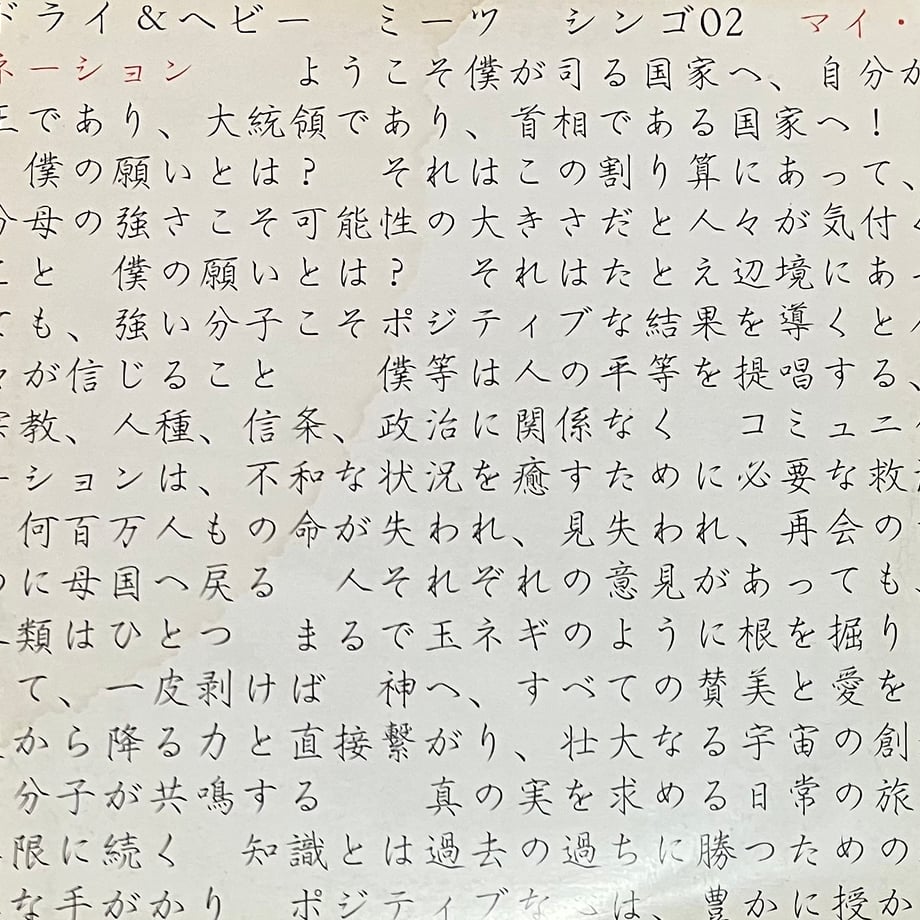 ドライ＆ヘビー　ミーツ　シンゴ02　マイ・
ネーション　　ようこそ僕が司る国家へ、自分が
王であり、大統領であり、首相である国家へ！
僕の願いとは？　それはこの割り算にあって、
分母の強さこそ可能性の大きさだと人々が気付く
こと　僕の願いとは？　それはたとえ辺境にあっ
ても、強い分子こそポジティブな結果を導くと人
々が信じること　　僕等は人の平等を提唱する、
宗教、人種、信条、政治に関係なく　コミュニケ
ーションは、不和な状況を癒すために必要な救済
何百万人もの命が失われ、見失われ、再会の
に母国へ戻る　人それぞれの意見があっても、
人類はひとつ　まるで玉ネギのように根を掘り
て、一皮剥けば　神へ、すべての賛美と愛を
から降る力と直接繋がり、壮大なる宇宙の創
分子が共鳴する　　真の実を求める日常の旅
限に続く　知識とは過去の過ちに勝つための
な手がかり　ポジティブな　は　豊かに授か